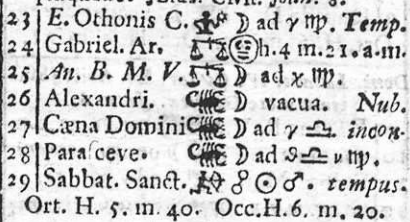 23 E. Othonis C. ☽ ad γ ♍. Temp.
24 Gabriel. Ar. ♎ h. 4 m. 21. a. m.
25 An. B. M. V. ♎ ☽ ad χ ♍.
26 Alexandri. ♏ ☽ vacua. Nub.
27 Cæna Domini ♏ ☽ ad γ ♎. incon-
28 Parasceve. ♏ ☽ ad ϑ ♎ ν ♍.
29 Sabbat. Sanct. ♐ ☍ ☉ ♂. tempus.
Ort. H. 5. m. 40. Occ. H. 6. m. 20.